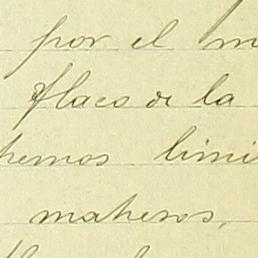 por el m
flaco de la
hemos limi
maheros,